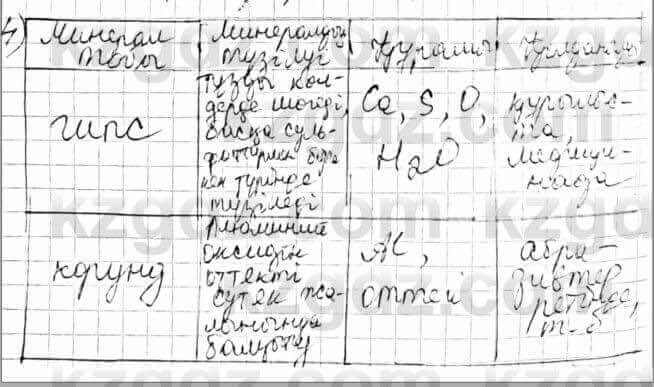 4)
Минерал тобы
Минералдың түзілуі
Құрамы
Қолданылуы
гипс
тұзды көл-
дерде шөгеді,
басқа суль-
фаттармен бірге
кен түрінде
түзіледі
Ca, S, O,
H₂O
құрылыс-
та,
медици-
нада
корунд
Алюминий
оксидін
оттекті
сутек жа-
лынында
балқыту
Al,
оттегі
абра-
зивтер
ретінде,
т-б